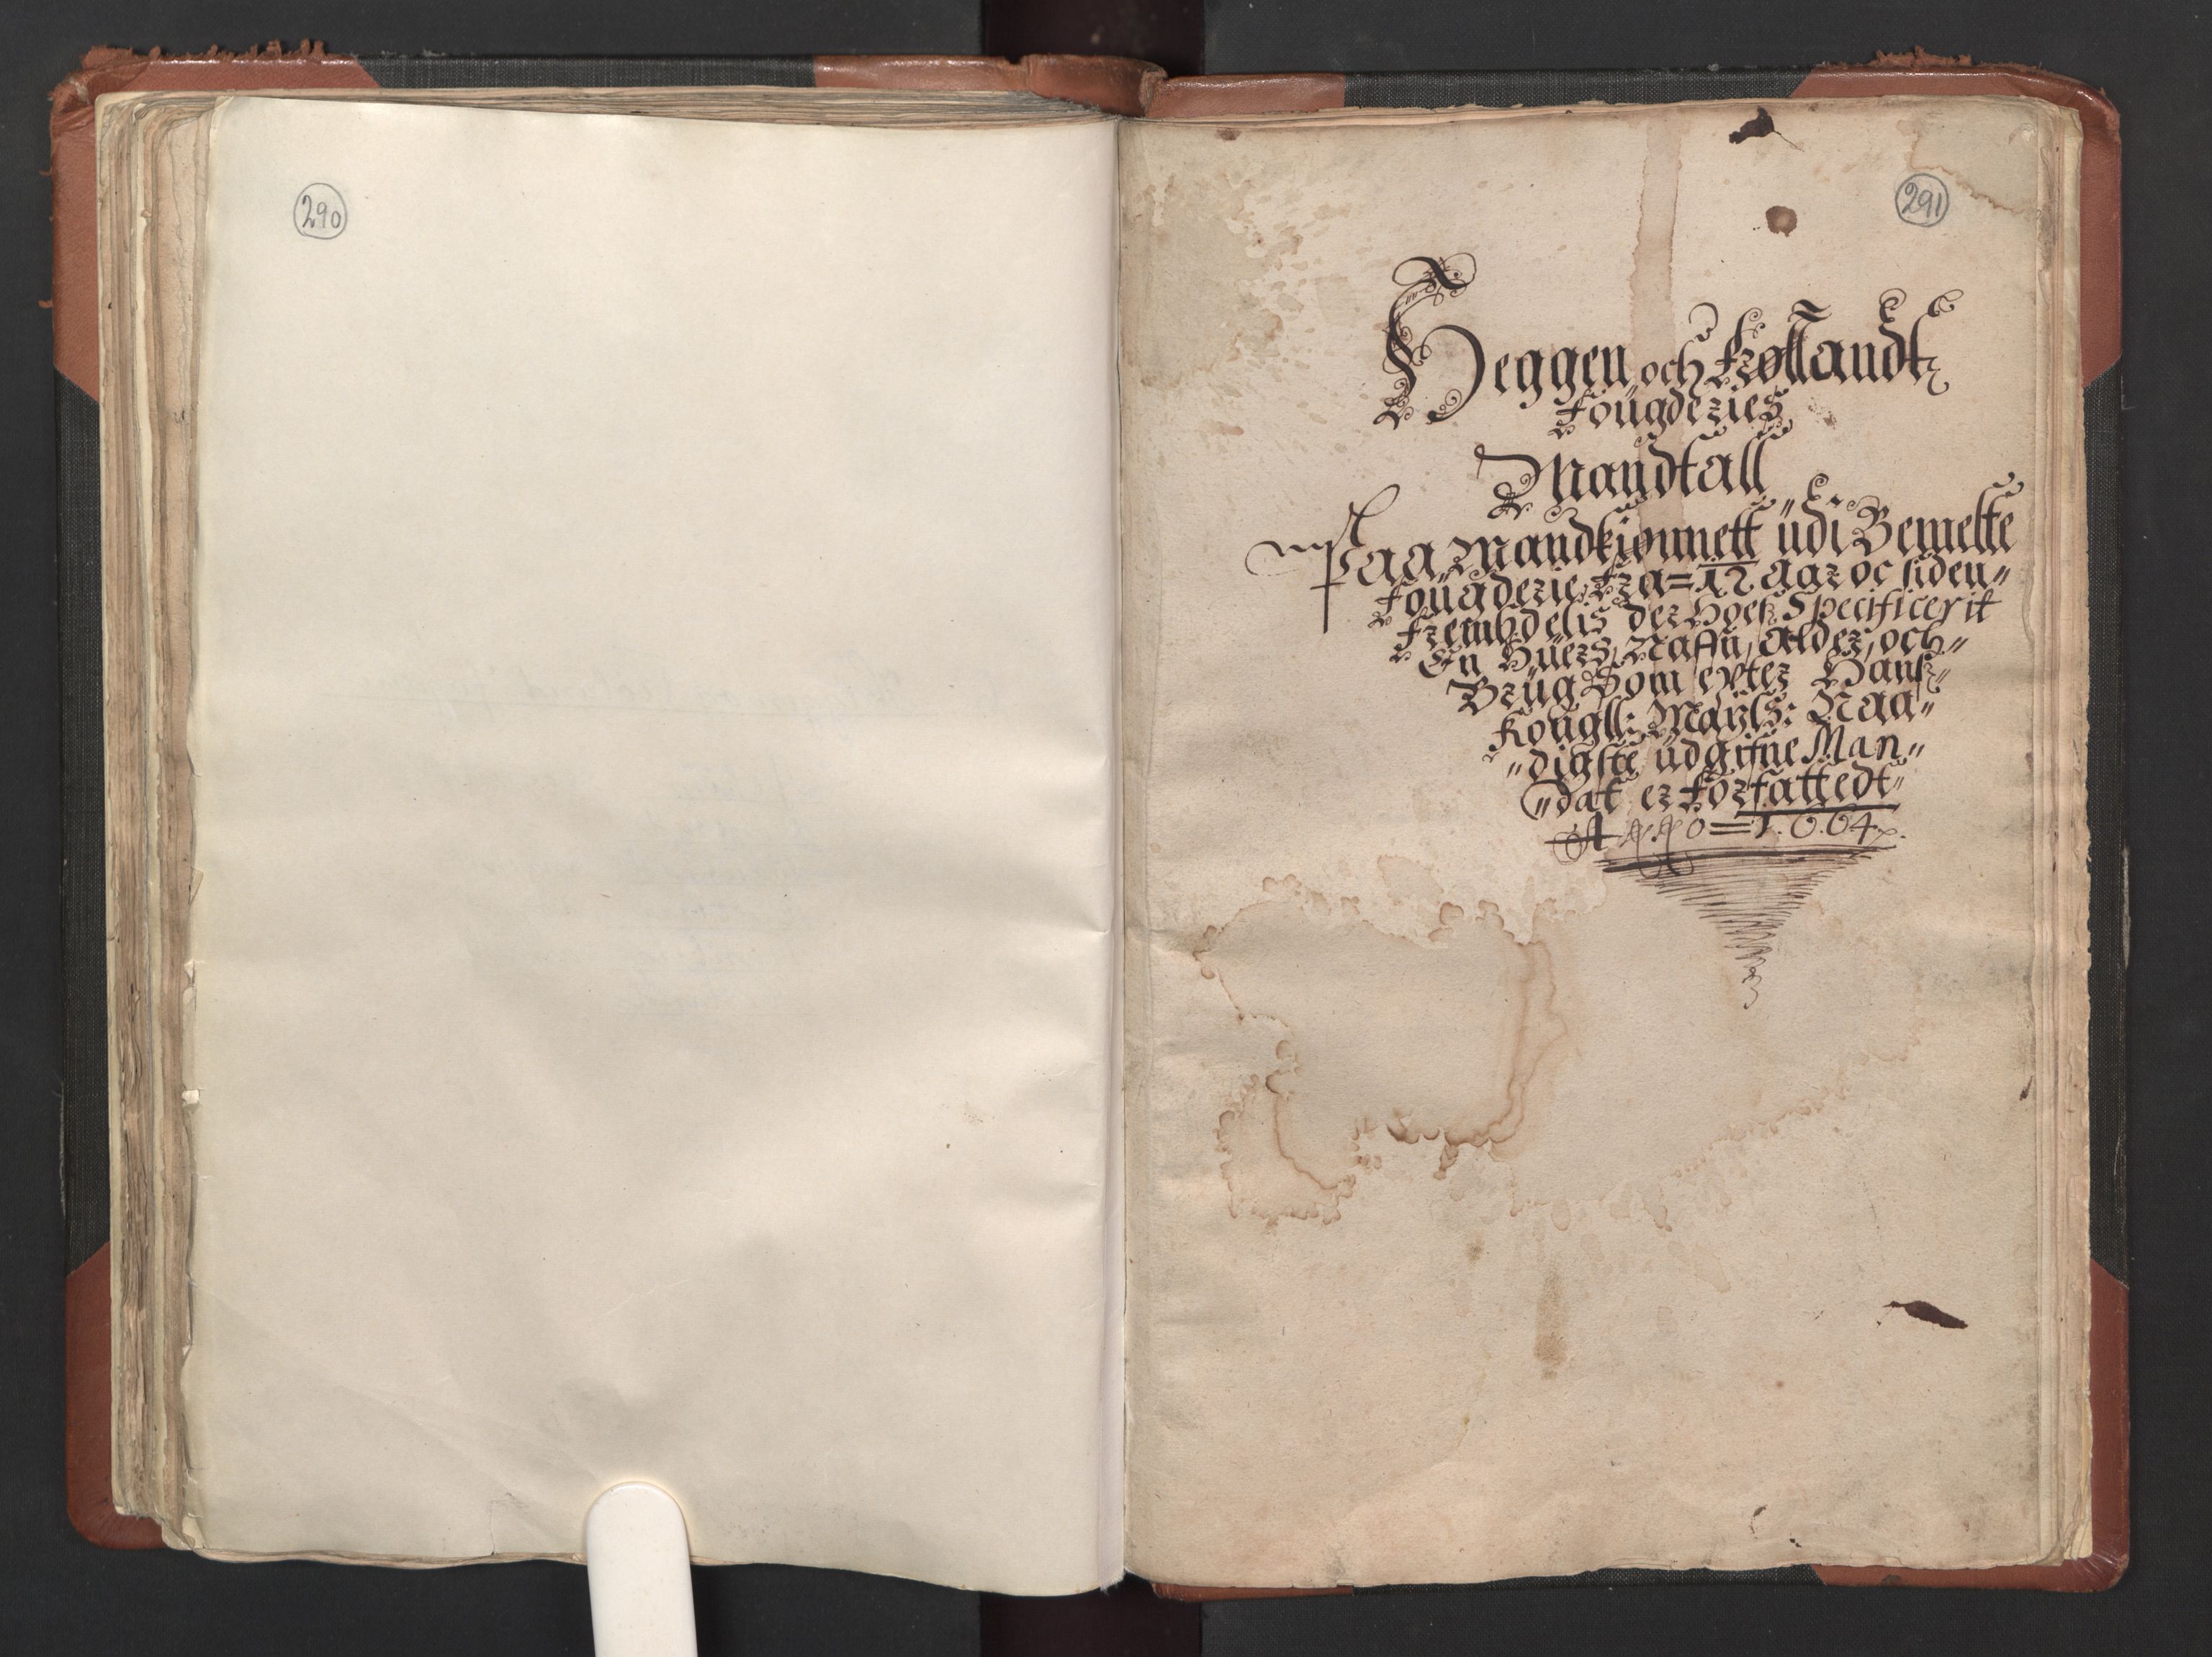 290
291
Heggen och Frøllandtz
Fougderies
Mandtall
Paa Mandkiønnett udi Bemelte
Fougderie, Fra = 12 Aar oc siden"
Fremhdelis der hoes Specificerit
En Huers Naffn, Alder, och"
Brug Som epter Hans"
Kongll: Maÿts: Naa"
"digste udgifne Man"
"dat er forfattedt"
ANNO = 1.6.64